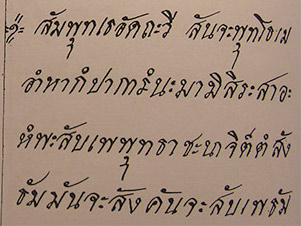 สัมพุทเธอัดถะวี สันจะพุทโธเม
อำหากํปาการํนะมามิสิระสาอะ
หํพะสับเพพุทธา ชะนาจิต์ตํสัง
ธัมมันจะสังคันจะสับเพธัม